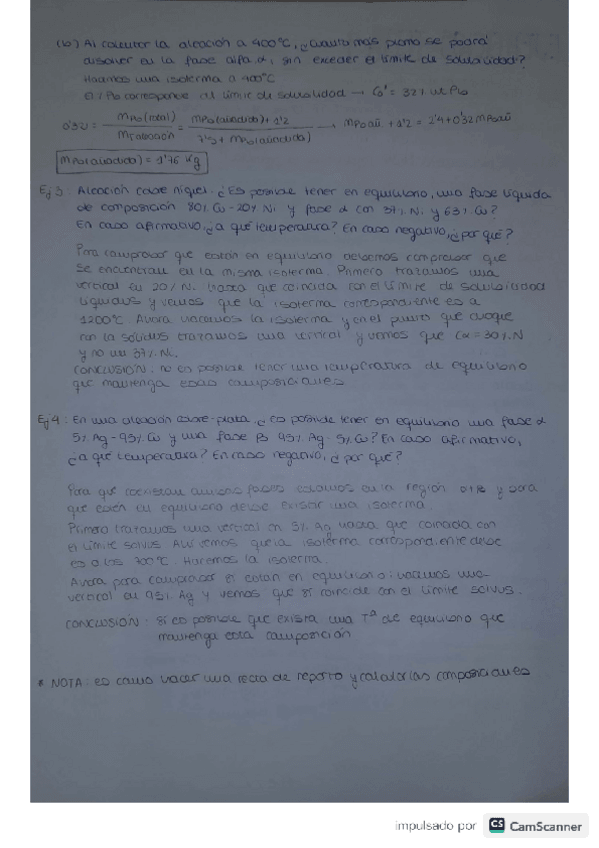 (b) Al calentar la aleación a 400°C, ¿cuánto más plomo se podrá
disolver en la fase alfa α, sin exceder el límite de solubilidad?
Hacemos una isoterma a 400°C
El % Pb corresponde al límite de solubilidad → Co' = 32% Pb
0'32 = mPb(total) / mTaleación = mPb(añadido) + 1'2 / 7'5 + mPb(añadido) → mPb añ + 1'2 = 2'4 + 0'32 mPb añ
mPb(añadido) = 1'76 Kg
Ej 3 Aleación cobre níquel. ¿Es posible tener en equilibrio, una fase líquida
de composición 80% Cu-20% Ni y fase α con 37% Ni y 63% Cu?
En caso afirmativo, ¿a qué temperatura? En caso negativo, ¿por qué?
Para comprobar que están en equilibrio debemos comprobar que
se encuentran en la misma isoterma. Primero trazamos una
vertical en 20% Ni hasta que coincida con el límite de solubilidad
liquidus y vemos que la isoterma correspondiente es a
1200°C Ahora hacemos la isoterma y en el punto que choque
con la sólidus trazamos una vertical y vemos que Cα = 30% N
y no un 37% Ni.
CONCLUSIÓN: no es posible tener una temperatura de equilibrio
que mantenga esas composiciones
Ej 4: En una aleación cobre-plata ¿es posible tener en equilibrio una fase α
5% Ag-95% Cu y una fase β 95% Ag-5% Cu? En caso afirmativo,
¿a qué temperatura? En caso negativo, ¿por qué?
Para que coexistan ambas fases estamos en la región α+β y para
que estén en equilibrio debe existir una isoterma.
Primero trazamos una vertical en 5% Ag hasta que coincida con
el límite solvus. Allí vemos que la isoterma correspondiente debe
es a los 700°C. Hacemos la isoterma.
Ahora para comprobar si están en equilibrio: hacemos una
vertical al 95% Ag y vemos que sí coincide con el límite solvus.
CONCLUSIÓN: sí es posible que exista una Tª de equilibrio que
mantenga esta composición
* NOTA: es como hacer una recta de reparto y calcular las composiciones
impulsado por CS CamScanner